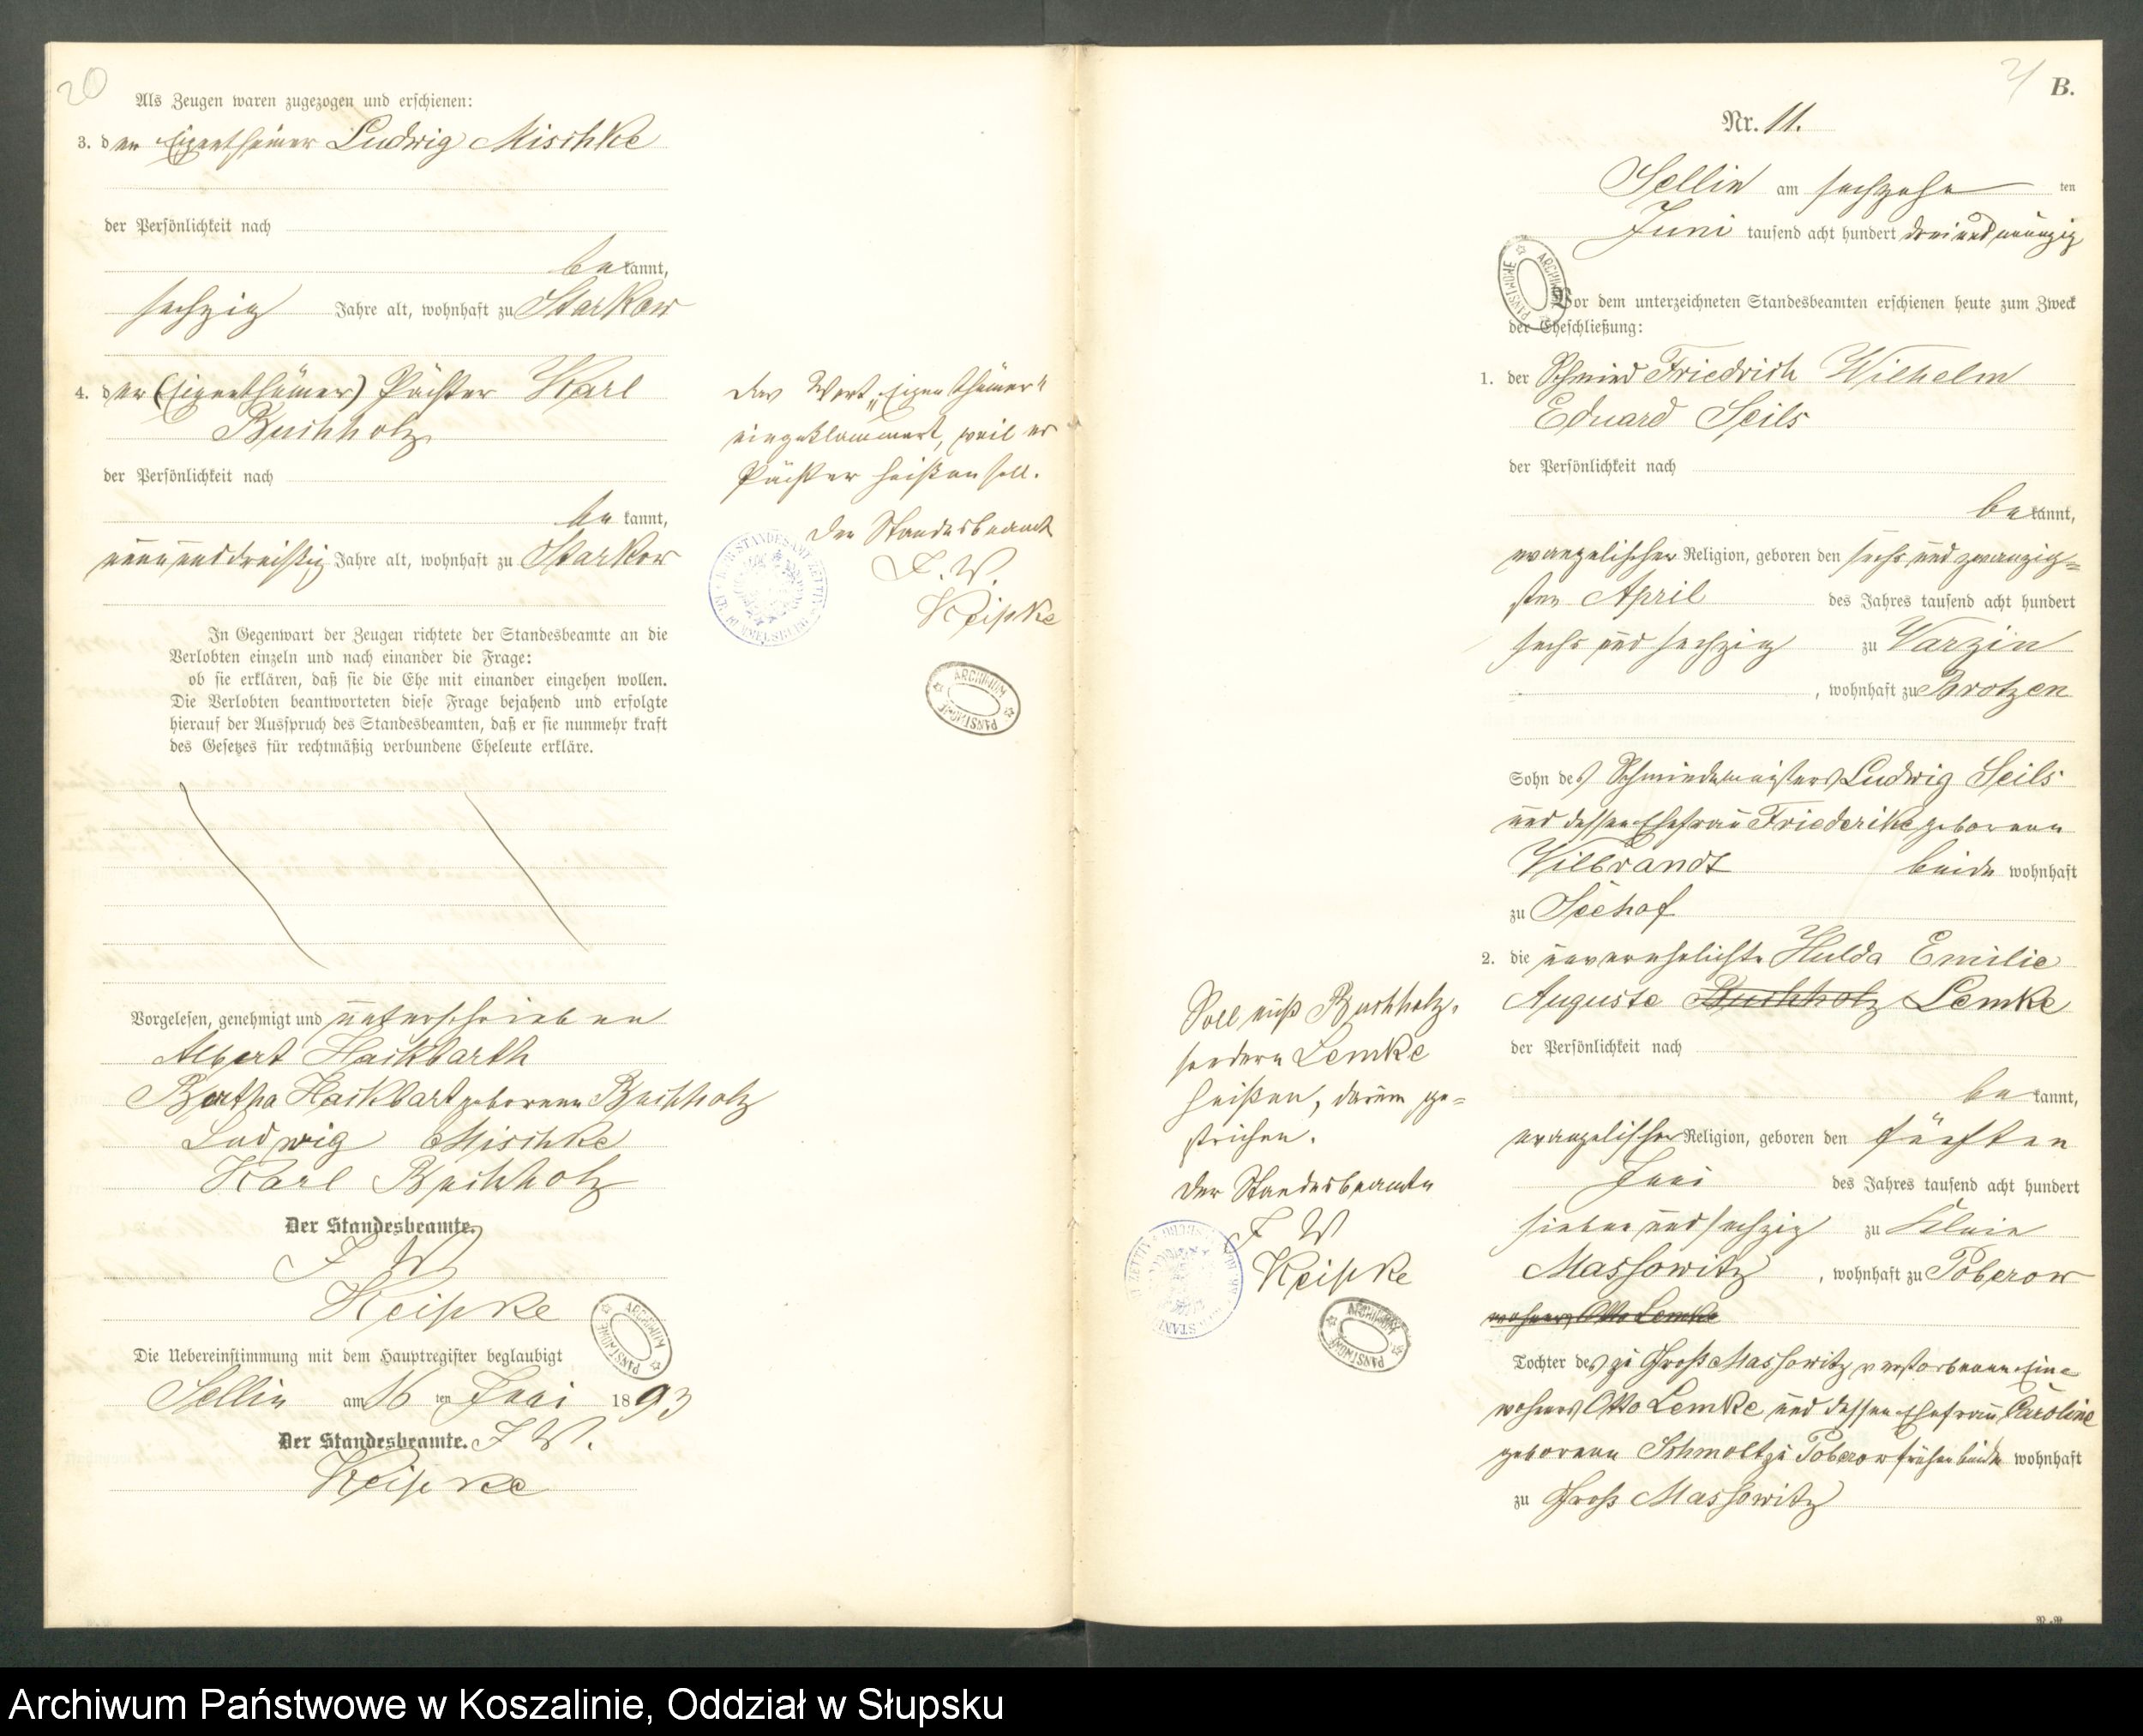 20
Als Zeugen waren zugezogen und erschienen:
3. den Eigenthümer Ludwig Mischke
der Persönlichkeit nach
bekannt,
sechzig Jahre alt, wohnhaft zu Starkow
4. den (Eigenthümer) Pächter Karl
Buchholz
der Persönlichkeit nach
bekannt,
neununddreißig Jahre alt, wohnhaft zu Starkow
In Gegenwart der Zeugen richtete der Standesbeamte an die
Verlobten einzeln und nach einander die Frage:
ob sie erklären, daß sie die Ehe mit einander eingehen wollen.
Die Verlobten beantworteten diese Frage bejahend und erfolgte
hierauf der Ausspruch des Standesbeamten, daß er sie nunmehr kraft
des Gesetzes für rechtmäßig verbundene Eheleute erkläre.
Vorgelesen, genehmigt und unterschrieben
Albert Hackbarth
Bertha Hackbart geborene Buchholz
Ludwig Mischke
Karl Buchholz
Der Standesbeamte.
J. W.
Keipke
Die Uebereinstimmung mit dem Hauptregister beglaubigt
Sellin am 16 ten Juni 1893
Der Standesbeamte. J. W.
Keipke
Das Wort „Eigenthümer"
eingeklammert, weil es
Pächter heißen soll.
Der Standesbeamte
J. W.
Keipke
ARCHIWUM PAŃSTWOWE
21
B.
Nr. 11.
Sellin am sechzehn ten
Juni tausend acht hundert dreiundneunzig
Vor dem unterzeichneten Standesbeamten erschienen heute zum Zweck
der Eheschließung:
1. der Schmied Friedrich Wilhelm
Eduard Seils
der Persönlichkeit nach
bekannt,
evangelischer Religion, geboren den sechs und zwanzig=
sten April des Jahres tausend acht hundert
sechs und sechzig zu Varzin
, wohnhaft zu Brotzen
Sohn des Schmiedemeisters Ludwig Seils
und dessen Ehefrau Friederike geborenen
Wilbrandt beide wohnhaft
zu Seehof
2. die unverehelichte Hulda Emilie
Auguste Buchholz Lemke
der Persönlichkeit nach
bekannt,
evangelischer Religion, geboren den fünften
Juni des Jahres tausend acht hundert
sieben und sechzig zu Klein
Massowitz, wohnhaft zu Poberow
wohners Otto Lemke
Tochter des zu Groß Massowitz verstorbenen Ein=
wohners Otto Lemke und dessen Ehefrau Caroline
geborenen Schmolt zu Poberow früher beide wohnhaft
zu Groß Massowitz
Soll nicht Buchholz,
sondern Lemke
heißen, darum ge=
strichen.
Der Standesbeamte
J W
Keipke
Archiwum Państwowe w Koszalinie, Oddział w Słupsku